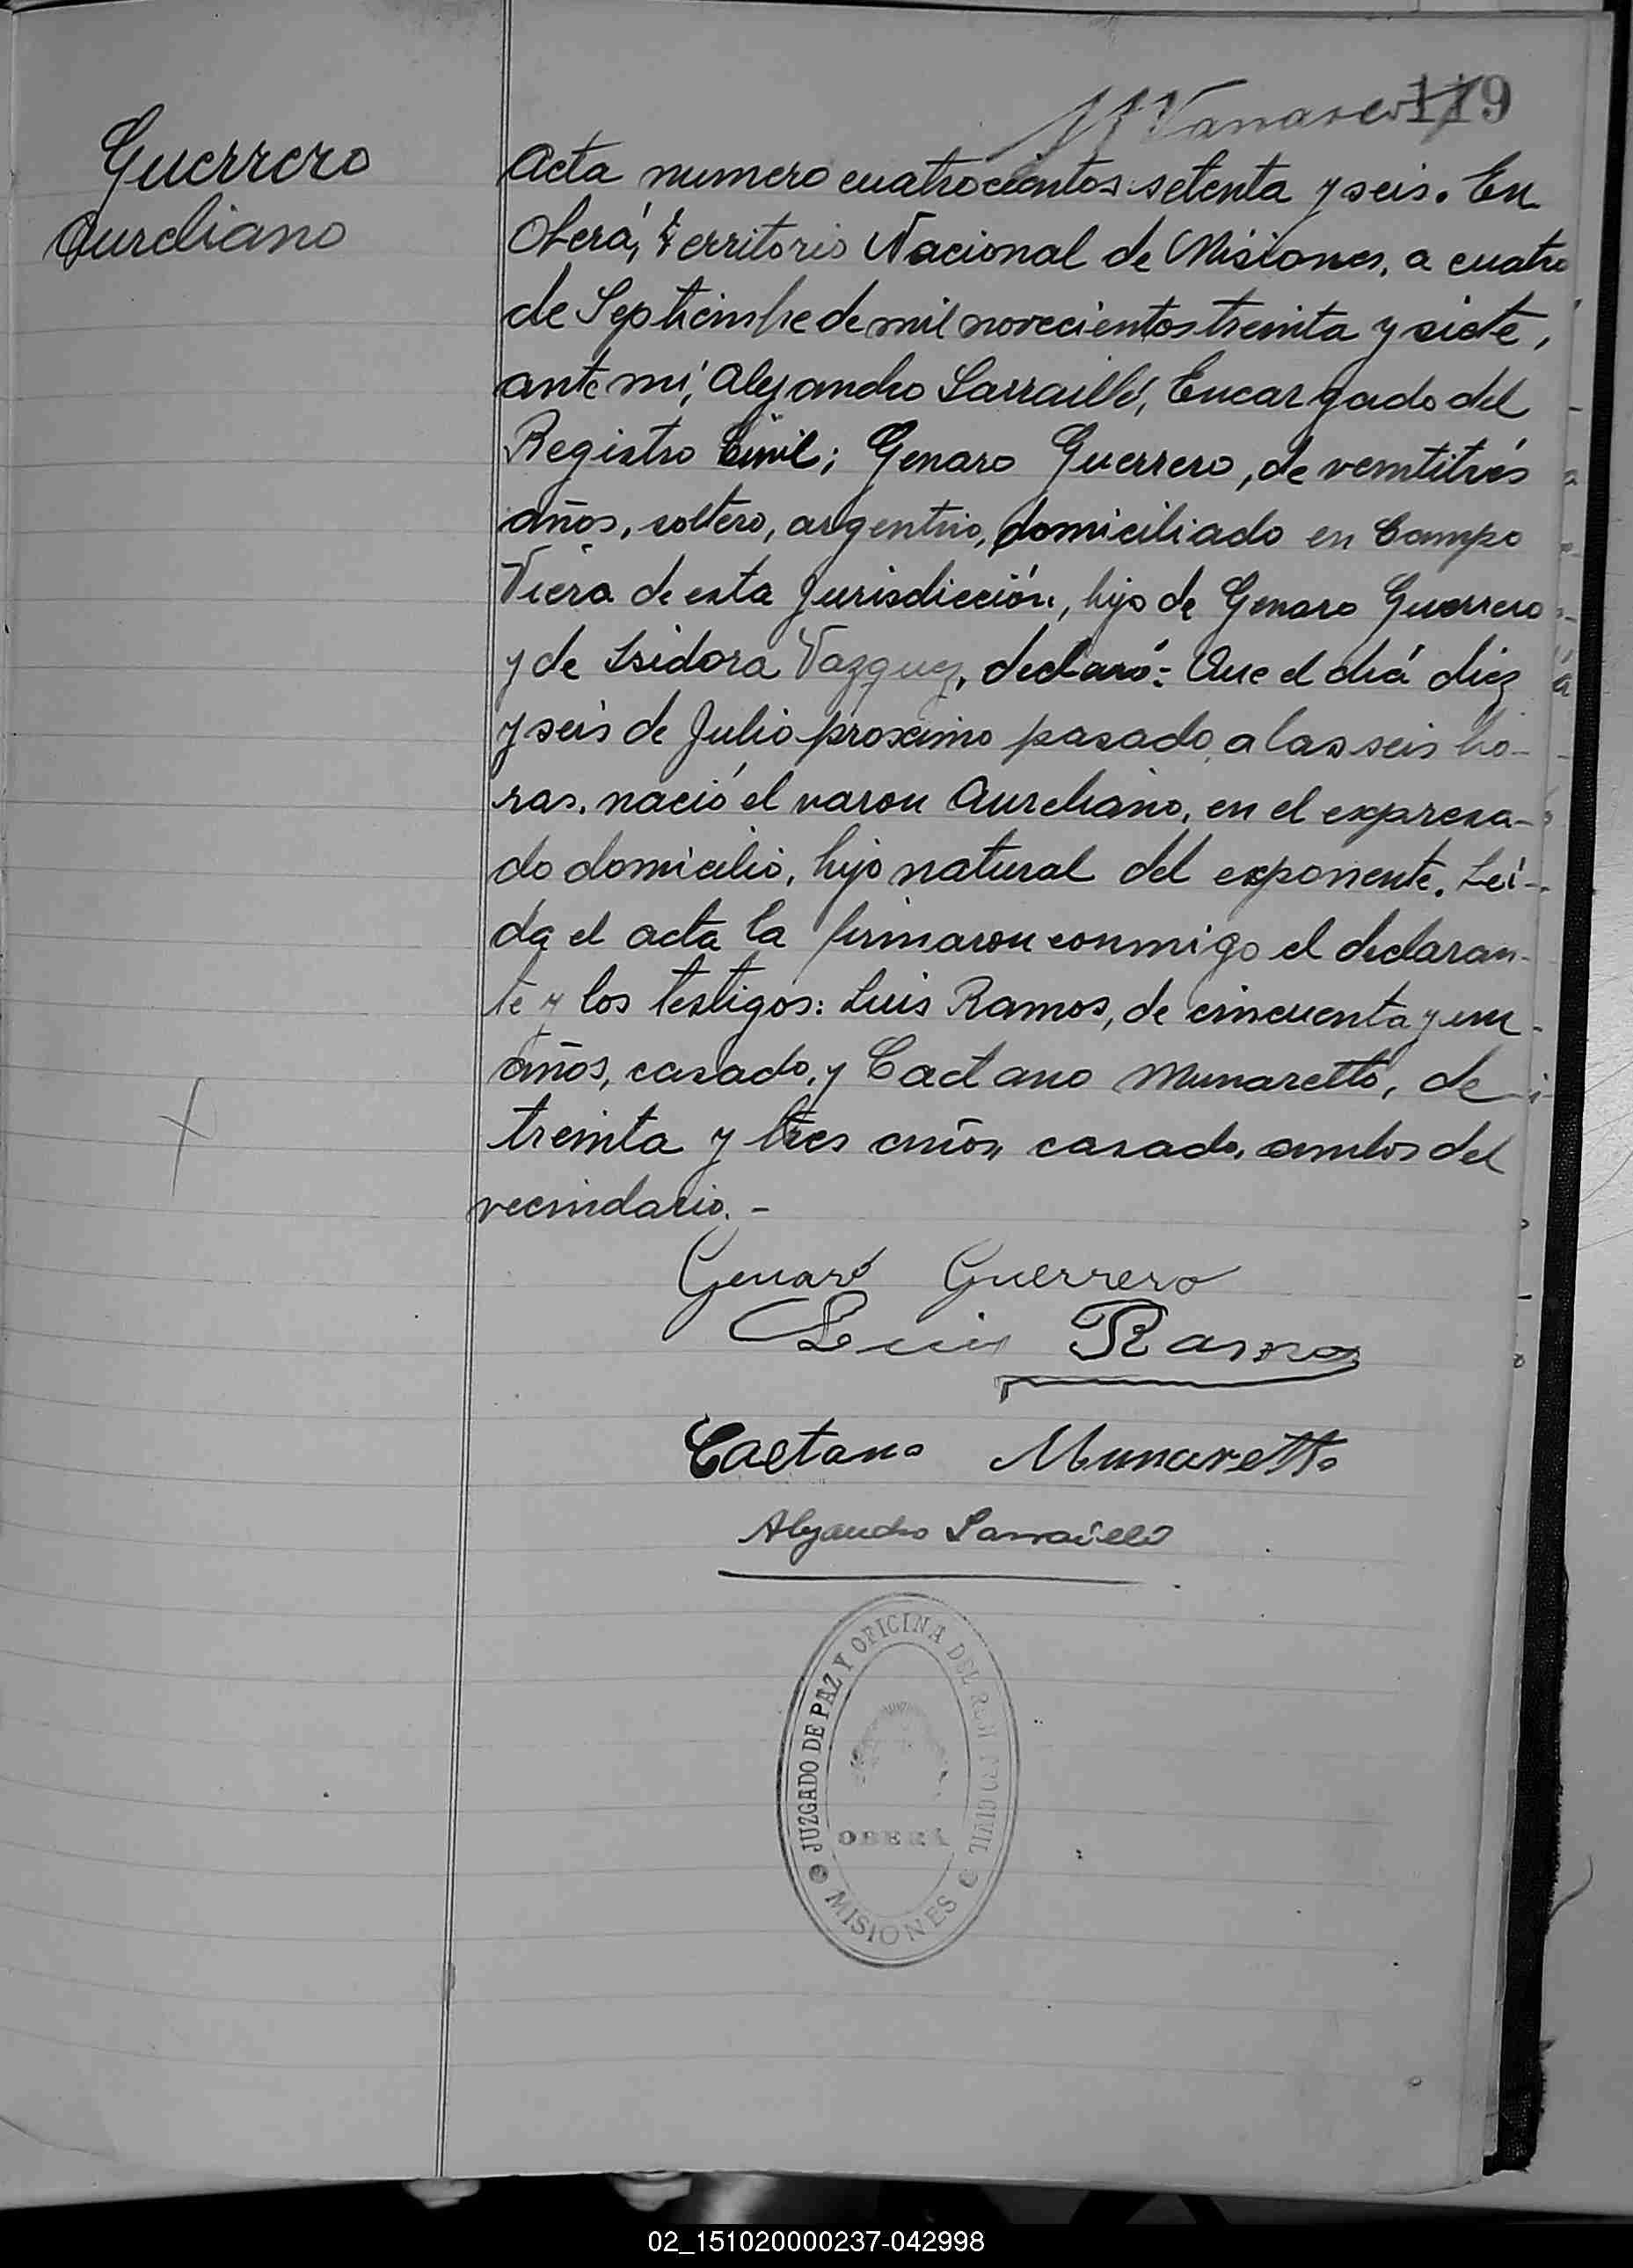 119
Guerrero
Aureliano
Acta numero cuatrocientos setenta y seis. En
Oberá, territorio Nacional de Misiones, a cuatro
de Septiembre de mil novecientos treinta y siete,
ante mi, Alejandro Sarraillé, Encargado del
Registro Civil; Genaro Guerrero, de veintitrés
años, soltero, argentino, domiciliado en Campo
Viera de esta Jurisdicción, hijo de Genaro Guerrero
y de Isidora Vazquez, declaró: Que el diá diez
y seis de Julio proximo pasado, a las seis ho-
ras, nació el varon Aureliano, en el expresa-
do domicilio, hijo natural del exponente. Leí-
da el acta la firmaron conmigo el declaran-
te y los testigos: Luis Ramos, de cincuenta y un
años, casado, y Caetano Munaretto, de
treinta y tres años, casado, ambos del
vecindario. -
Genaro Guerrero
Luis Ramos
Caetano Munaretto
Alejandro Sarraillé
JUZGADO DE PAZ Y OFICINA DEL REGISTRO CIVIL
OBERÁ
MISIONES
02_151020000237-042998